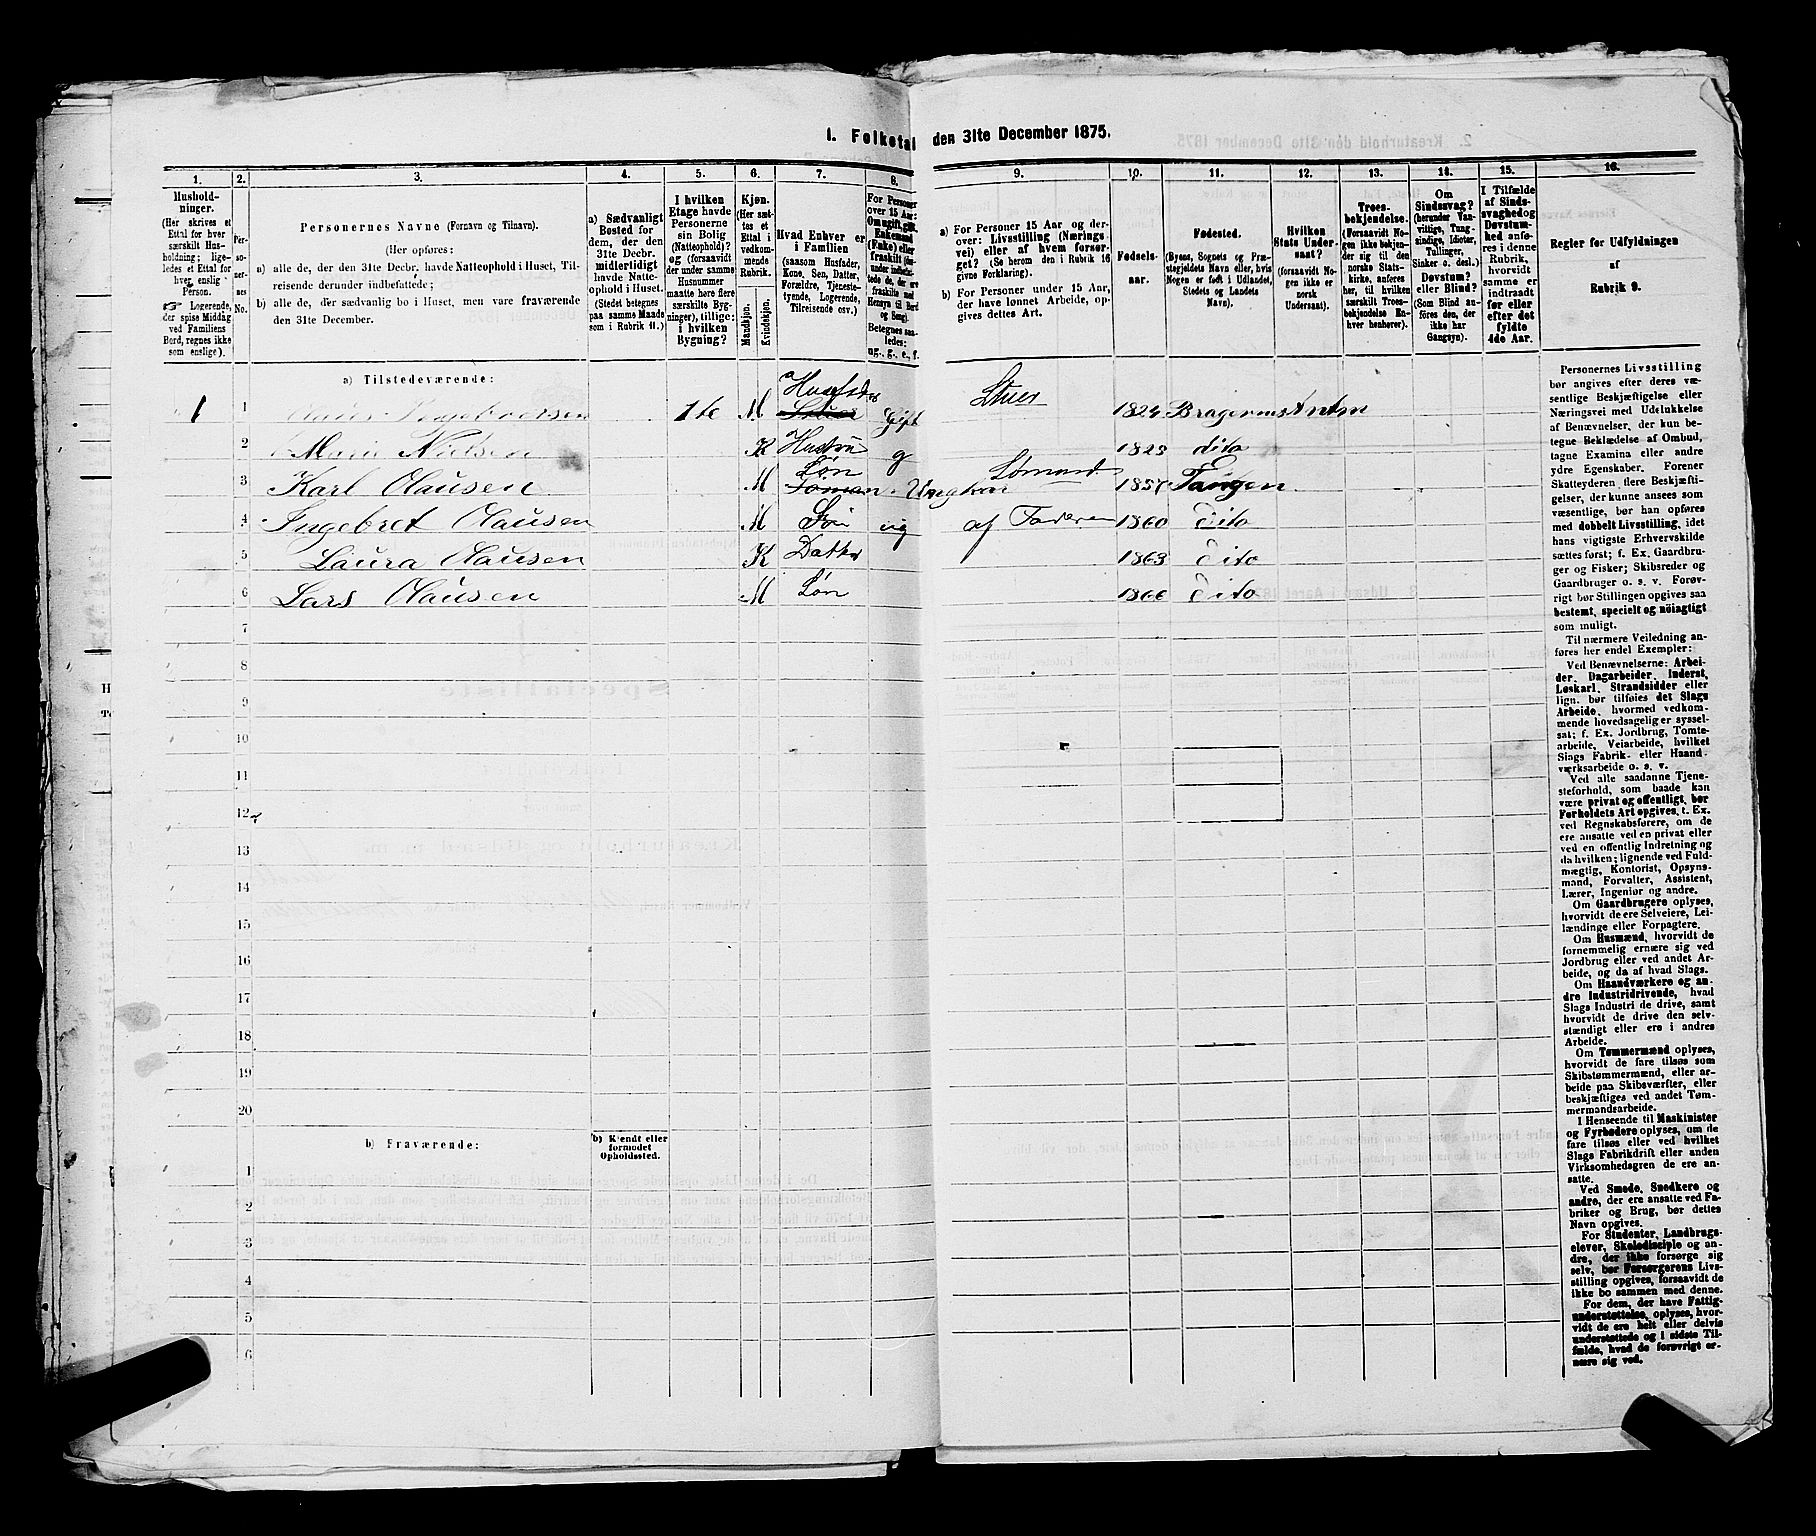 1. Folketal den 31te December 1875.
1. 2. 3. 4. 5. 6. 7. 8. 9. 10. 11. 12. 13. 14. 15. 16.
Hushold-
ninger.
(Her skrives et
Ettal for hver
særskilt Hus-
holdning; lige-
ledes et Ettal for
hver enslig
Person.
Logerende,
der spise Middag
ved Familiens
Bord, regnes ikke
som enslige).
Per-
so-
ner-
nes
No.
Personernes Navne (Fornavn og Tilnavn).
(Her opføres:
a) alle de, der den 31te Decbr. havde Natteophold i Huset, Til-
reisende derunder indbefattede;
b) alle de, der sædvanlig bo i Huset, men vare fraværende
den 31te December.
a) Sædvanligt
Bosted for
dem, der den
31te Decbr.
midlertidigt
havde Natte-
ophold i Huset.
(Stedet betegnes
paa samme Maade
som i Rubrik 11.)
I hvilken
Etage havde
Personerne
sin Bolig
(Natteophold)?
og (forsaavidt
der under samme
Husnummer
maatte høre flere
særskilte Byg-
ninger), tillige:
i hvilken
Bygning?
Kjøn.
(Her sæt-
tes et
Ettal i
vedkom-
mende
Rubrik.
Mandkjøn.
Kvindekjøn.
Hvad Enhver er
i Familien
(saasom Husfader,
Kone, Søn, Datter,
Forældre, Tjeneste-
tyende, Logerende,
Tilreisende osv.)
For Personer
over 15 Aar:
Om ugift, gift,
Enkemand
(Enke) eller
fraskilt
Betegnes saa-
ledes:
ug., g., e., f.
a) For Personer 15 Aar og der-
over: Livsstilling (Nærings
vei) eller af hvem forsør-
get? (Se herom den i Rubrik 16
givne Forklaring).
b) For Personer under 15 Aar,
der have lønnet Arbeide, op-
gives dettes Art.
Fødsels-
aar.
Fødested.
(Byens, Sognets og Præ-
stegjeldets Navn eller, hvis
Nogen er født i Udlandet,
Stedets og Landets
Navn).
Hvilken
Stats Under-
saat?
(forsaavidt No-
gen ikke er
norsk
Undersaat).
Troes-
bekjendelse.
(Forsaavidt No-
gen ikke bekjen-
der sig til den
norske Stats-
kirke, anføres
her, til hvilken
særskilt Troes-
bekjendelse En-
hver henhører).
Om
Sindssvag?
(herunder Van-
vittige, Tung-
sindige, Idioter,
Tullinger,
Sinker o. desl.)
Døvstum?
eller Blind?
(Som Blind an-
føres den, der
ikke har
Gangsyn).
I Tilfælde
af Sinds-
svaghed og
Døvstum-
hed anfø-
res i denne
Rubrik,
hvorvidt
samme er
indtraadt
før eller
efter det
fyldte
4de Aar.
Regler for Udfyldningen
af
Rubrik 9.
a) Tilstedeværende:
1 1 Claus Ingebretsen 1te M Husfader Gift Stuer 1824 Bragernes
2 Marie Nielsen K Hustru g 1823 dito
3 Karl Clausen M Søn Ungkar Sømand 1857 Tangen
4 Ingebret Clausen M Søn ug af Faderen 1860 Dito
5 Laura Clausen K Datter 1863 Dito
6 Lars Clausen M Søn 1866 Dito
7
8
9
10
11
12
13
14
15
16
17
18
19
20
b) Fraværende:
b) Kjendt eller
formodet
Opholdssted.
1
2
3
4
5
6
Personernes Livsstilling
bør angives efter deres væ-
sentlige Beskjæftigelse eller
Næringsvei med Udelukkelse
af Benævnelser, der kun be-
tegne Beklædelse af Ombud,
tagne Examina eller andre
ydre Egenskaber. Forener
Skatteyderen flere Beskjæfti-
gelser, der kunne ansees som
væsentlige, bør han opføres
med dobbelt Livsstilling, idet
hans vigtigste Erhvervskilde
sættes først; f. Ex. Gaardbru-
ger og Fisker; Skibsreder og
Gaardbruger o. s. v. Forøv-
rigt bør Stillingen opgives saa
bestemt, specielt og nöiagtigt
som muligt.
Til nærmere Veiledning an-
føres her endel Exempler:
Ved Benævnelserne: Arbei-
der, Dagarbeider, Inderst,
Løskarl, Strandsidder eller
lign. bør tilføies det Slags
Arbeide, hvormed vedkom-
mende hovedsagelig er syssel-
sat; f. Ex. Jordbrug, Tomte-
arbeide, Veiarbeide, hvilket
Slags Fabrik- eller Haand-
værksarbeide o. s. v.
Ved alle saadanne Tjene-
steforhold, som baade kan
være privat og offentligt, bør
Forholdets Art opgives, t. Ex.
ved Regnskabsførere, om de
ere ansatte ved en privat eller
ved en offentlig Indretning og
da hvilken; lignende ved Fuld-
mægtig, Kontorist, Opsyns-
mand, Forvalter, Assistent,
Lærer, Ingeniør og andre.
Om Gaardbrugere oplyses,
hvorvidt de ere Selveiere, Lei-
lændinge eller Forpagtere.
Om Husmænd, hvorvidt de
fornemmelig ernære sig ved
Jordbrug eller ved andet Ar-
beide, og da af hvad Slags.
Om Haandværkere og an-
dre Industridrivende, hvad
Slags Industri de drive, samt
hvorvidt de drive den selv-
stændigt eller ere i andres
Arbeide.
Om Tømmermænd oplyses,
hvorvidt de fare tilsøs som
Skibstømmermænd, eller ar-
beide paa Skibsværfter, eller
beskjæftiges ved andet Tøm-
mermandsarbeide.
I Henseende til Maskinister
og Fyrbødere oplyses, om de
fare tilsøs eller ved hvilket
Slags Fabrikdrift eller anden
Virksomhedsgren de ere an-
satte.
Ved Smede, Snedkere og
andre, der ere ansatte ved Fa-
briker og Brug, bør dettes
Navn opgives.
For Studenter, Landbrugs-
elever, Skoledisciple og an-
dre, der ikke forsørge sig
selv, bør Forsørgerens Livs-
stilling opgives, forsaavidt de
ikke bo sammen med denne.
For dem, der have Fattig-
understøttelse, oplyses, hvor-
vidt de ere helt eller delvis
understøttede og i sidste Til-
fælde, hvad de forøvrigt er-
nære sig ved.